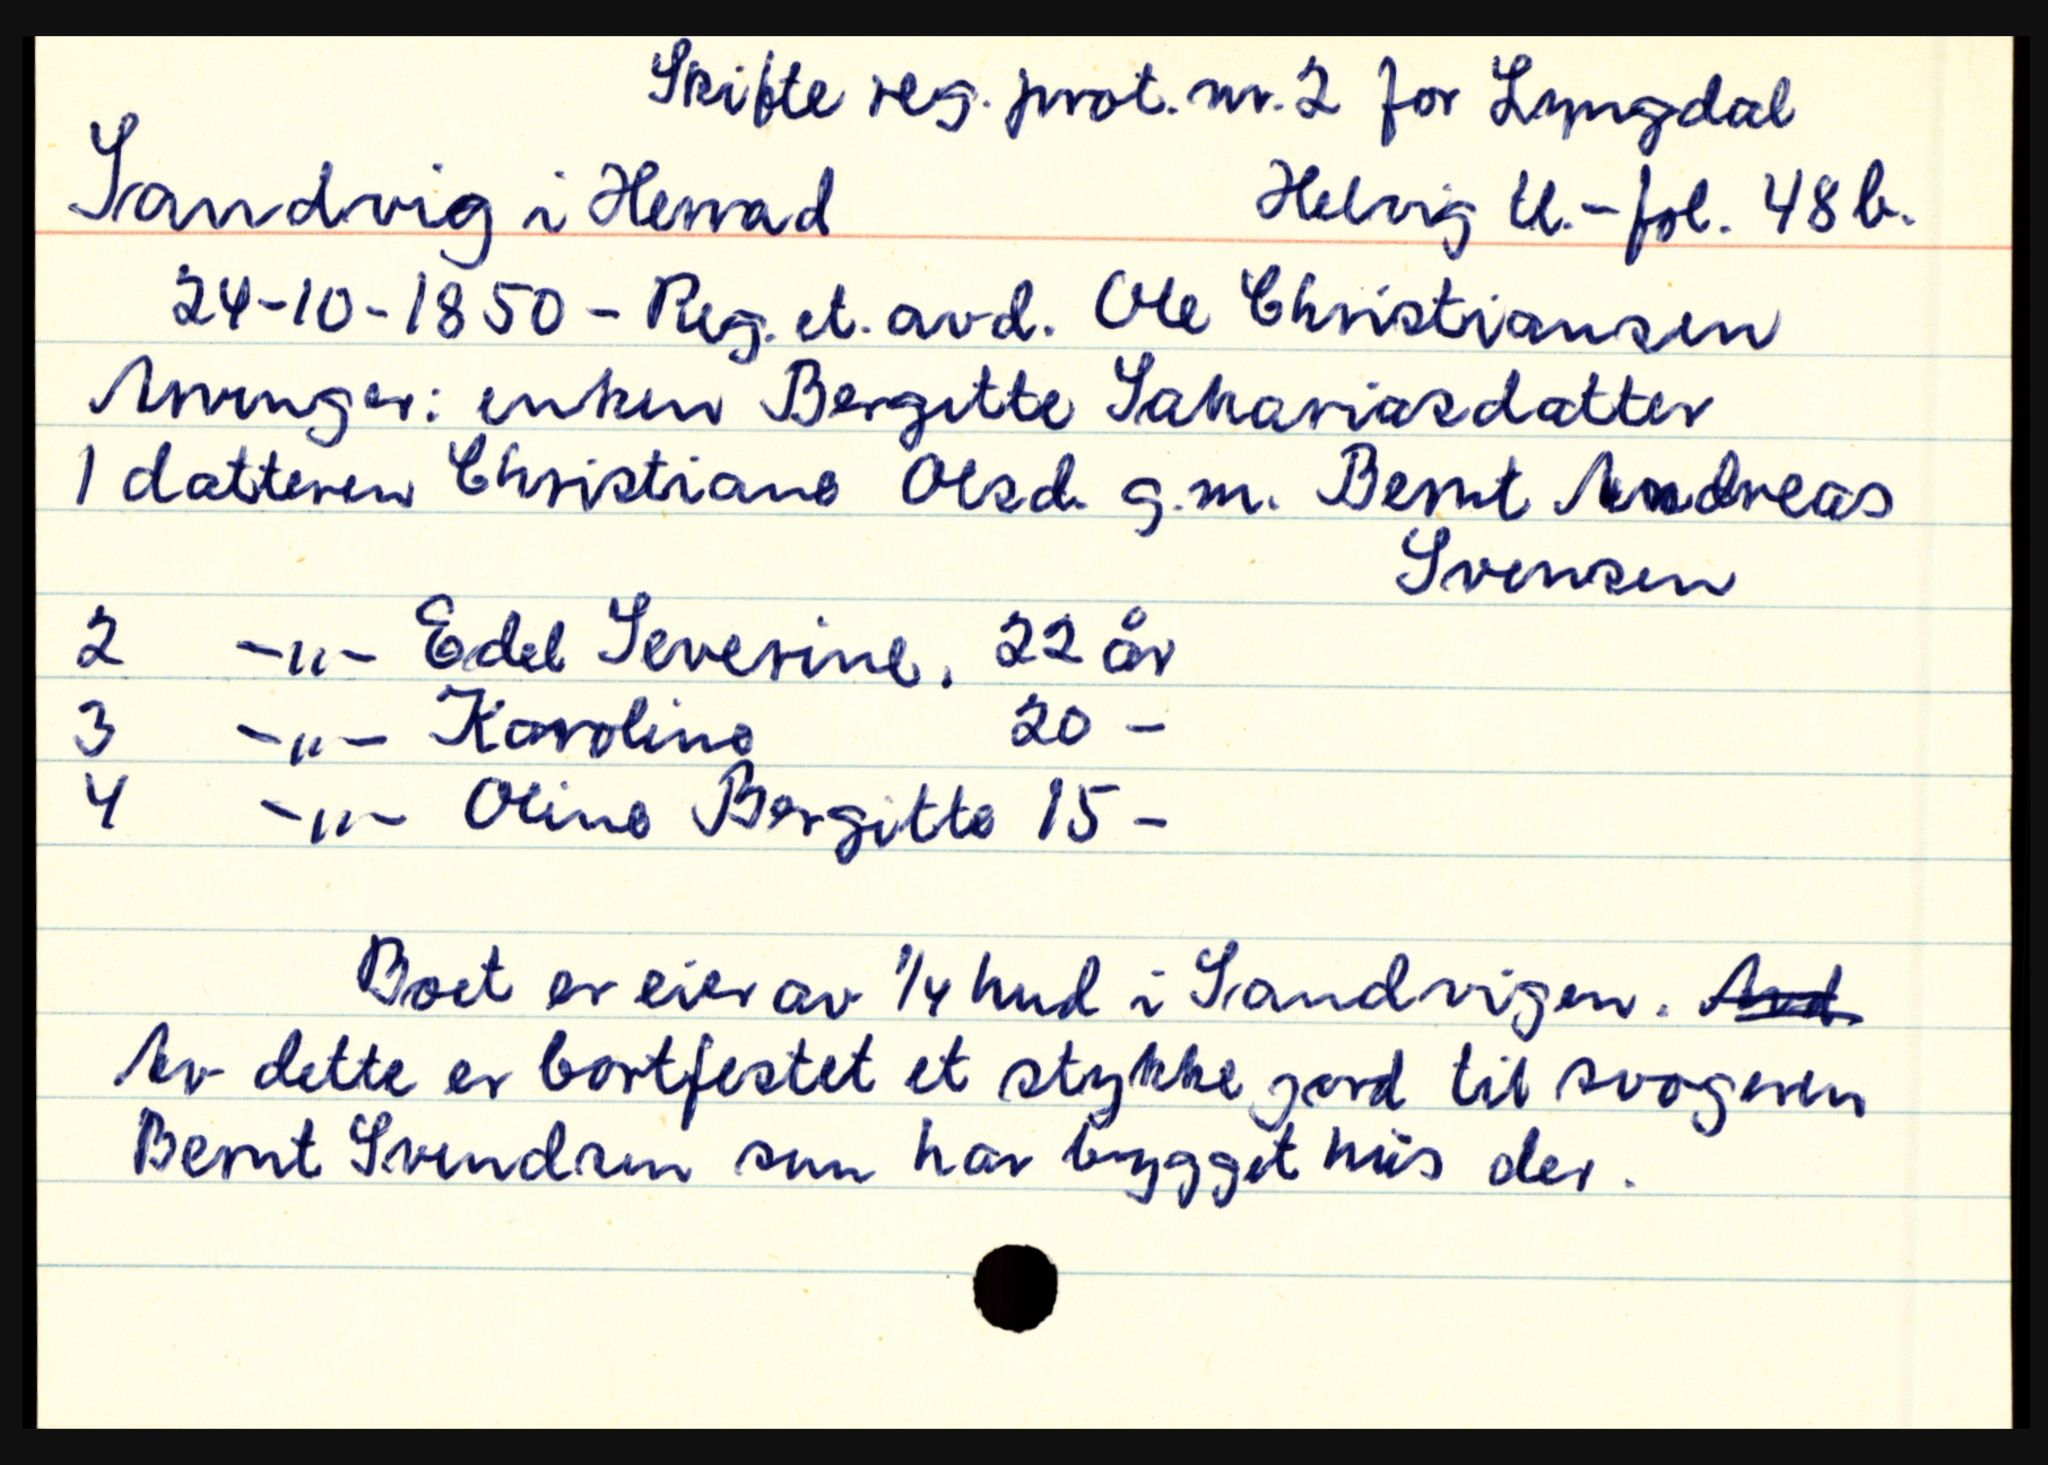 Skifte reg. prot. nr. 2 for Lyngdal
Sandvig i Herrad Helvig U. - fol. 48 b.
24-10-1850 - Reg. et. avd. Ole Christiansen
Arvinger: enken Bergitte Sakariasdatter
1 datteren Christiane Olsd. g.m. Bernt Andreas
Svensen
2 -"- Edel Severine. 22 år
3 -"- Karoline 20 -
4 -"- Oline Bergitte 15 -
Boet er eier av 1/4 hud i Sandvigen. Avd.
Av dette er bortfestet et stykke jord til svogeren
Bernt Svendsen som har bygget hus der.